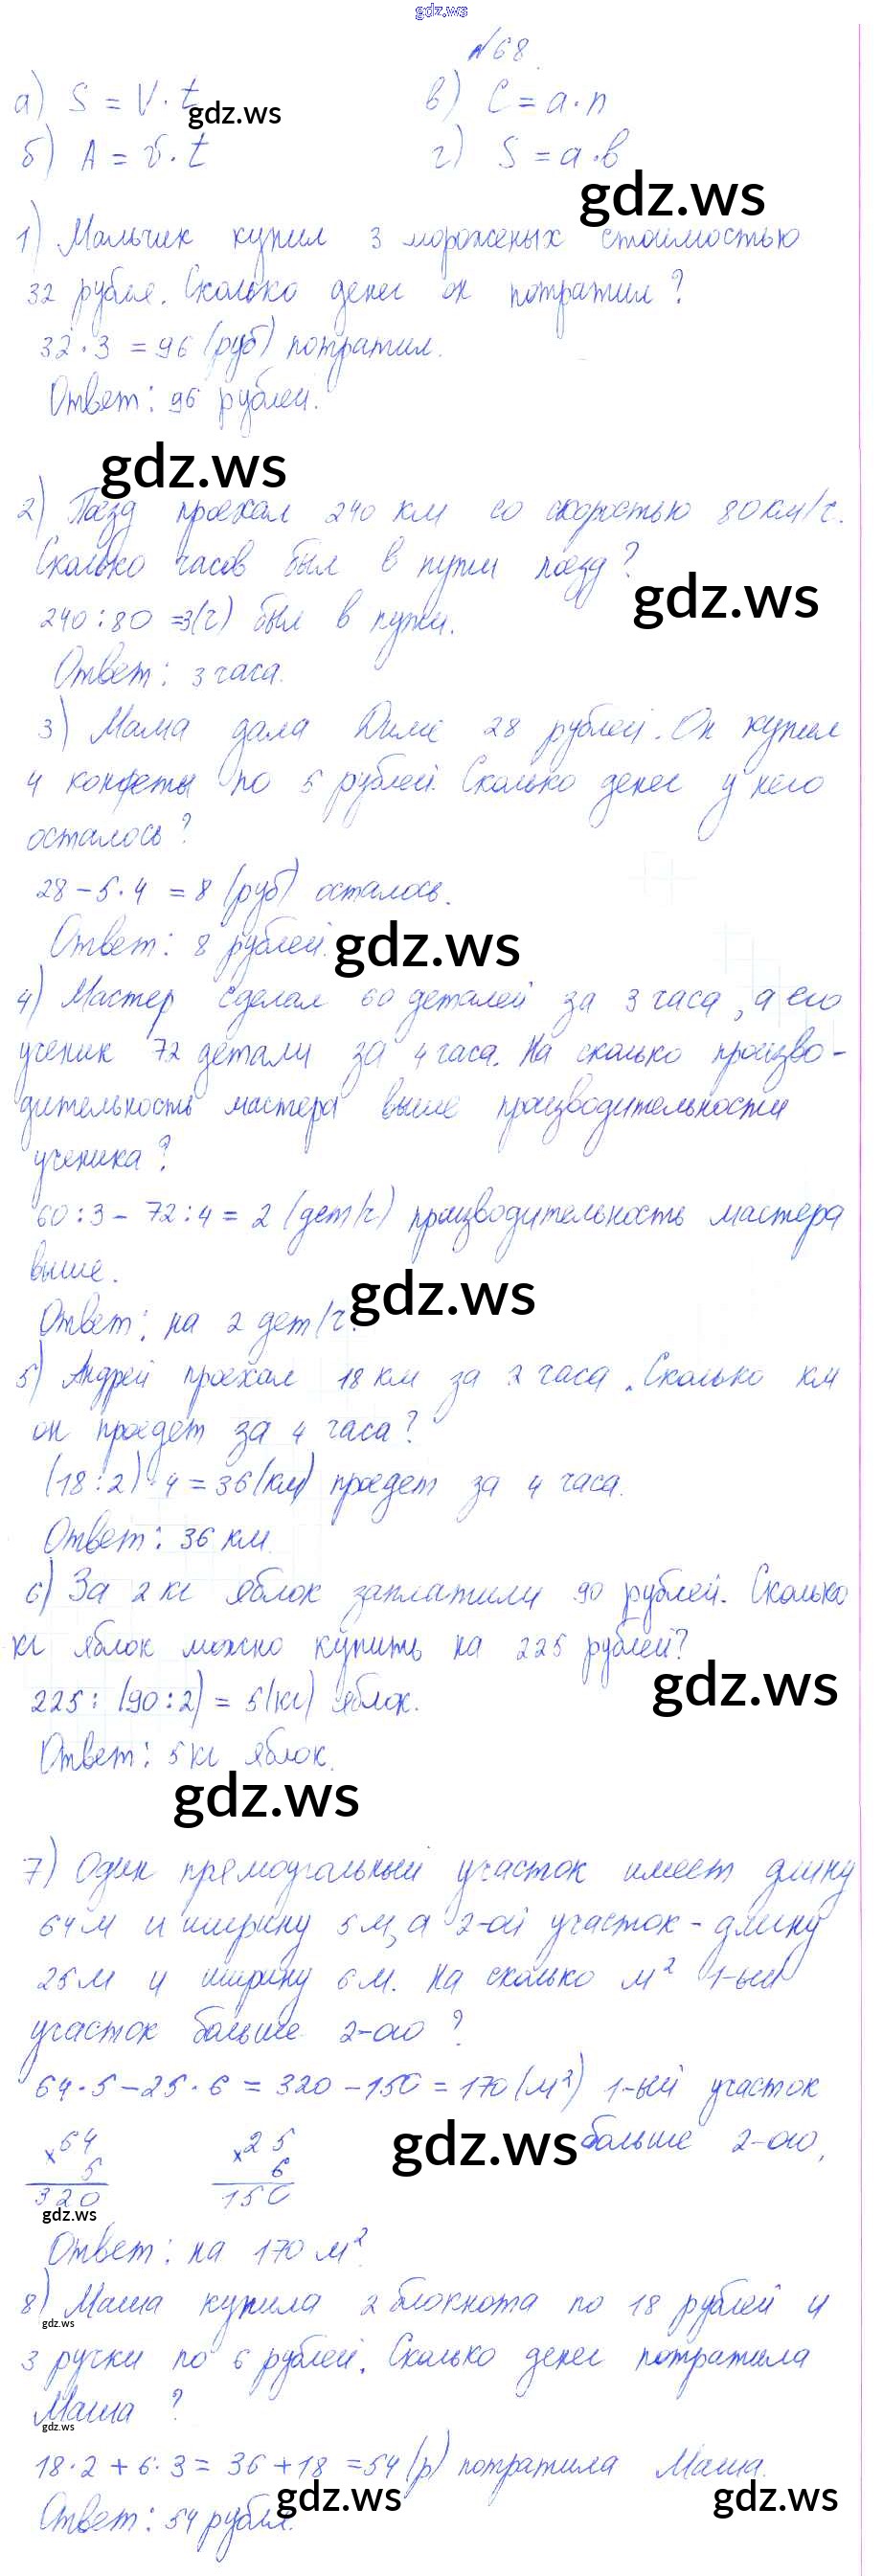 gdz.ws
№68
а) S = V · t
в) C = a · n
gdz.ws
б) A = v · t
г) S = a · b
gdz.ws
1) Мальчик купил 3 мороженых стоимостью
32 рубля. Сколько денег он потратил?
32 · 3 = 96 (руб) потратил.
Ответ: 96 рублей.
gdz.ws
2) Поезд проехал 240 км со скоростью 80 км/ч.
Сколько часов был в пути поезд?
gdz.ws
240 : 80 = 3(ч) был в пути.
Ответ: 3 часа.
3) Мама дала Диме 28 рублей. Он купил
4 конфеты по 5 рублей. Сколько денег у него
осталось?
28 - 5 · 4 = 8 (руб) осталось.
Ответ: 8 рублей.
gdz.ws
4) Мастер сделал 60 деталей за 3 часа, а его
ученик 72 детали за 4 часа. На сколько произво-
дительность мастера выше производительности
ученика?
60 : 3 - 72 : 4 = 2 (дет/ч) производительность мастера
выше.
gdz.ws
Ответ: на 2 дет/ч.
5) Андрей проехал 18 км за 2 часа. Сколько км
он проедет за 4 часа?
(18 : 2) · 4 = 36 (км) проедет за 4 часа.
Ответ: 36 км.
6) За 2 кг яблок заплатили 90 рублей. Сколько
кг яблок можно купить на 225 рублей?
gdz.ws
225 : (90 : 2) = 5 (кг) яблок.
Ответ: 5 кг яблок.
gdz.ws
7) Один прямоугольный участок имеет длину
64 м и ширину 5 м, а 2-ой участок - длину
25 м и ширину 6 м. На сколько м² 1-ый
участок больше 2-ого?
64 · 5 - 25 · 6 = 320 - 150 = 170 (м²) 1-ый участок
больше 2-ого.
gdz.ws
× 64 × 25
5 6
320 150
gdz.ws
Ответ: на 170 м².
8) Маша купила 2 блокнота по 18 рублей и
gdz.ws
3 ручки по 6 рублей. Сколько денег потратила
Маша?
gdz.ws
18 · 2 + 6 · 3 = 36 + 18 = 54 (р) потратила Маша.
gdz.ws
gdz.ws
Ответ: 54 рубля.